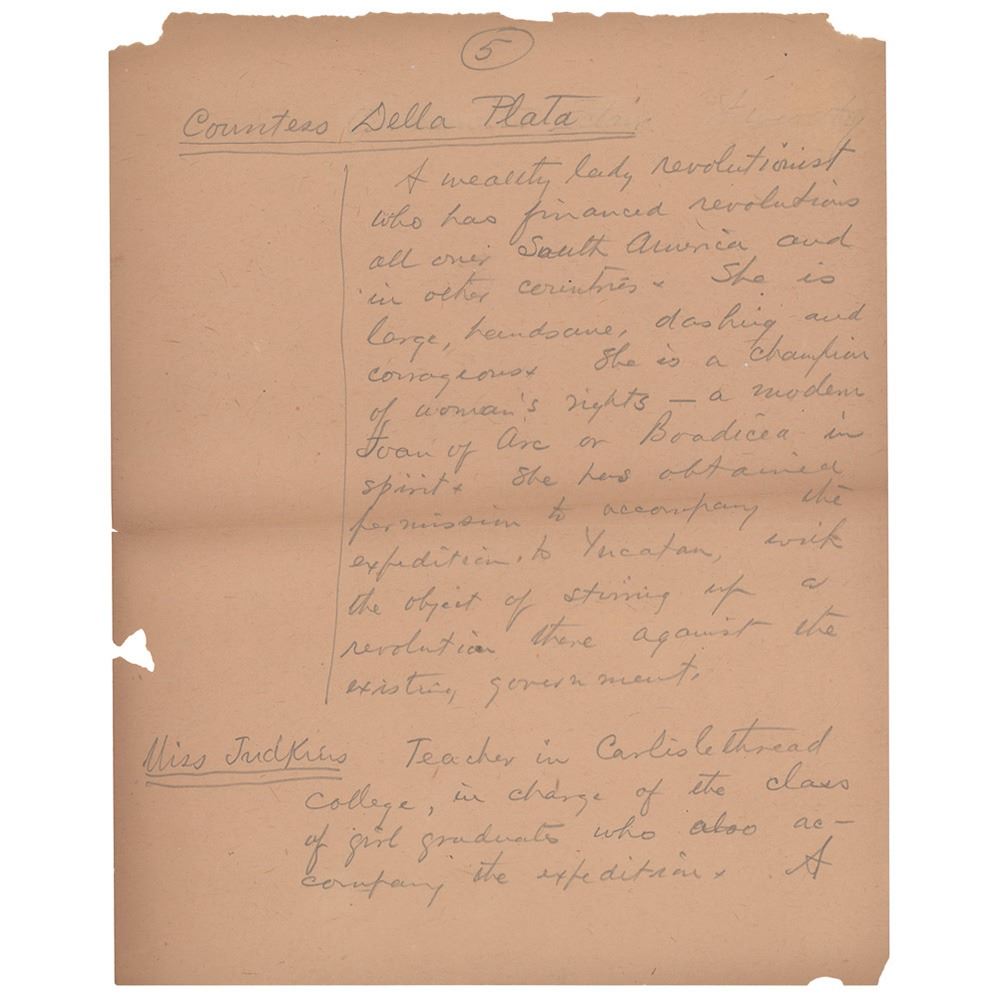 5
Countess Della Plata
A wealthy lady revolutionist
who has financed revolutions
all over South America and
in other countries. She is
large, handsome, dashing and
corrageous. She is a champion
of woman's rights — a modern
Joan of Arc or Boadicea in
spirit. She has obtained
permission to accompany the
expedition to Yucatan, with
the object of stirring up a
revolution there against the
existing government.
Miss Judkins Teacher in Carlislethread
College, in charge of the class
of girl graduates who also ac-
company the expedition. A